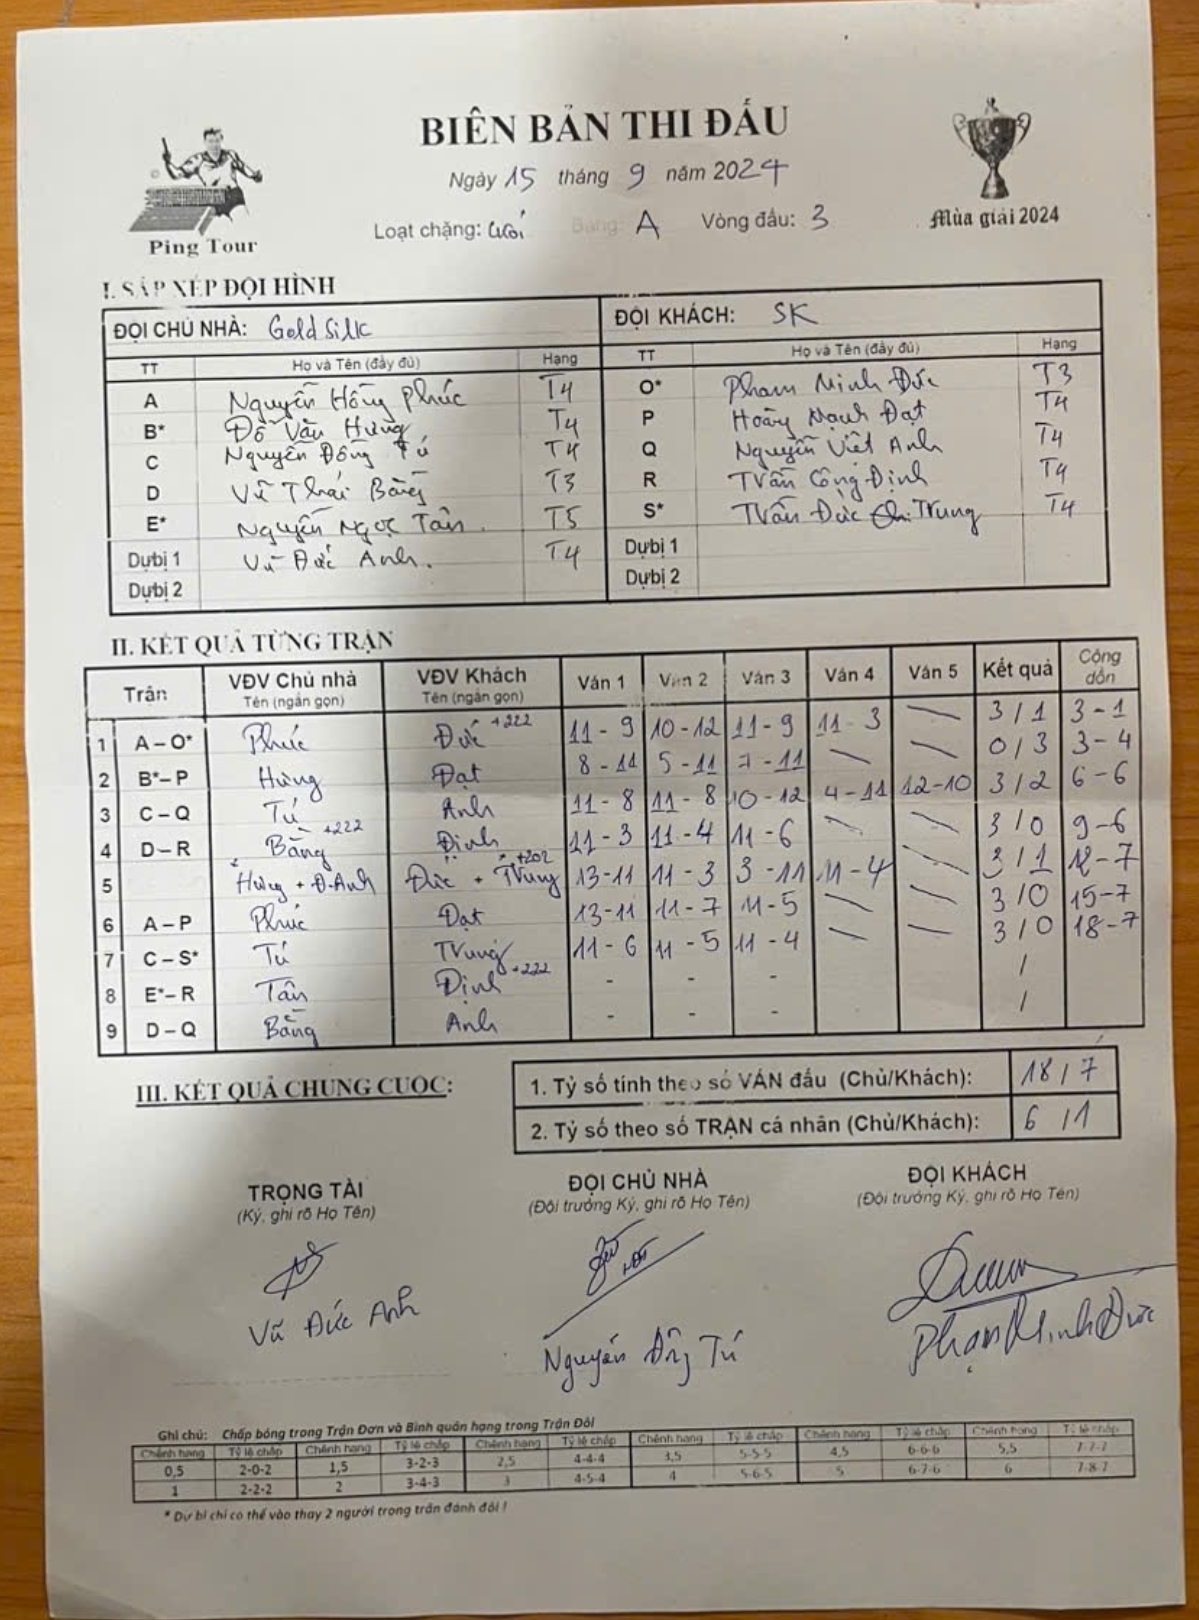 BIÊN BẢN THI ĐẤU
Ngày 15 tháng 9 năm 2024
Loạt chặng: cuối Bảng: A Vòng đấu: 3
Ping Tour
Mùa giải 2024
I. SẮP XẾP ĐỘI HÌNH
ĐỘI CHỦ NHÀ: Gold Silk ĐỘI KHÁCH: SK
TT Họ và Tên (đầy đủ) Hạng TT Họ và Tên (đầy đủ) Hạng
A Nguyễn Hồng Phúc T4 O* Phạm Minh Đức T3
B* Đỗ Văn Hưng T4 P Hoàng Mạnh Đạt T4
C Nguyễn Đồng Tú T4 Q Nguyễn Việt Anh T4
D Vũ Thái Bằng T3 R Trần Công Định T4
E* Nguyễn Ngọc Tân. T5 S* Trần Đức Trung T4
Dự bị 1 Vũ Đức Anh. T4 Dự bị 1
Dự bị 2 Dự bị 2
II. KẾT QUẢ TỪNG TRẬN
Trận VĐV Chủ nhà Tên (ngắn gọn) VĐV Khách Tên (ngắn gọn) Ván 1 Ván 2 Ván 3 Ván 4 Ván 5 Kết quả Cộng dồn
1 A – O* Phúc Đức +222 11 - 9 10 - 12 11 - 9 11 - 3 3 / 1 3 - 1
2 B* – P Hưng Đạt 8 - 11 5 - 11 7 - 11 0 / 3 3 - 4
3 C – Q Tú Anh 11 - 8 11 - 8 10 - 12 4 - 11 12 - 10 3 / 2 6 - 6
4 D – R Bằng +222 Định 11 - 3 11 - 4 11 - 6 3 / 0 9 - 6
5 Hưng + Đ.Anh Đức + Trung +202 13 - 11 11 - 3 3 - 11 11 - 4 3 / 1 12 - 7
6 A – P Phúc Đạt 13 - 11 11 - 7 11 - 5 3 / 0 15 - 7
7 C – S* Tú Trung 11 - 6 11 - 5 11 - 4 3 / 0 18 - 7
8 E* – R Tân Định +222 - - - /
9 D – Q Bằng Anh - - - /
III. KẾT QUẢ CHUNG CUỘC:
1. Tỷ số tính theo số VÁN đấu (Chủ/Khách): 18 / 7
2. Tỷ số theo số TRẬN cá nhân (Chủ/Khách): 6 / 1
TRỌNG TÀI ĐỘI CHỦ NHÀ ĐỘI KHÁCH
(Ký, ghi rõ Họ Tên) (Đội trưởng Ký, ghi rõ Họ Tên) (Đội trưởng Ký, ghi rõ Họ Tên)
Vũ Đức Anh Nguyễn Đồng Tú Phạm Minh Đức
Ghi chú: Chấp bóng trong Trận Đơn và Bình quân hạng trong Trận Đôi
Chênh hạng Tỷ lệ chấp Chênh hạng Tỷ lệ chấp Chênh hạng Tỷ lệ chấp Chênh hạng Tỷ lệ chấp Chênh hạng Tỷ lệ chấp Chênh hạng Tỷ lệ chấp
0,5 2-0-2 1,5 3-2-3 2,5 4-4-4 3,5 5-5-5 4,5 6-6-6 5,5 7-7-7
1 2-2-2 2 3-4-3 3 4-5-4 4 5-6-5 5 6-7-6 6 7-8-7
* Dự bị chỉ có thể vào thay 2 người trong trận đánh đôi !